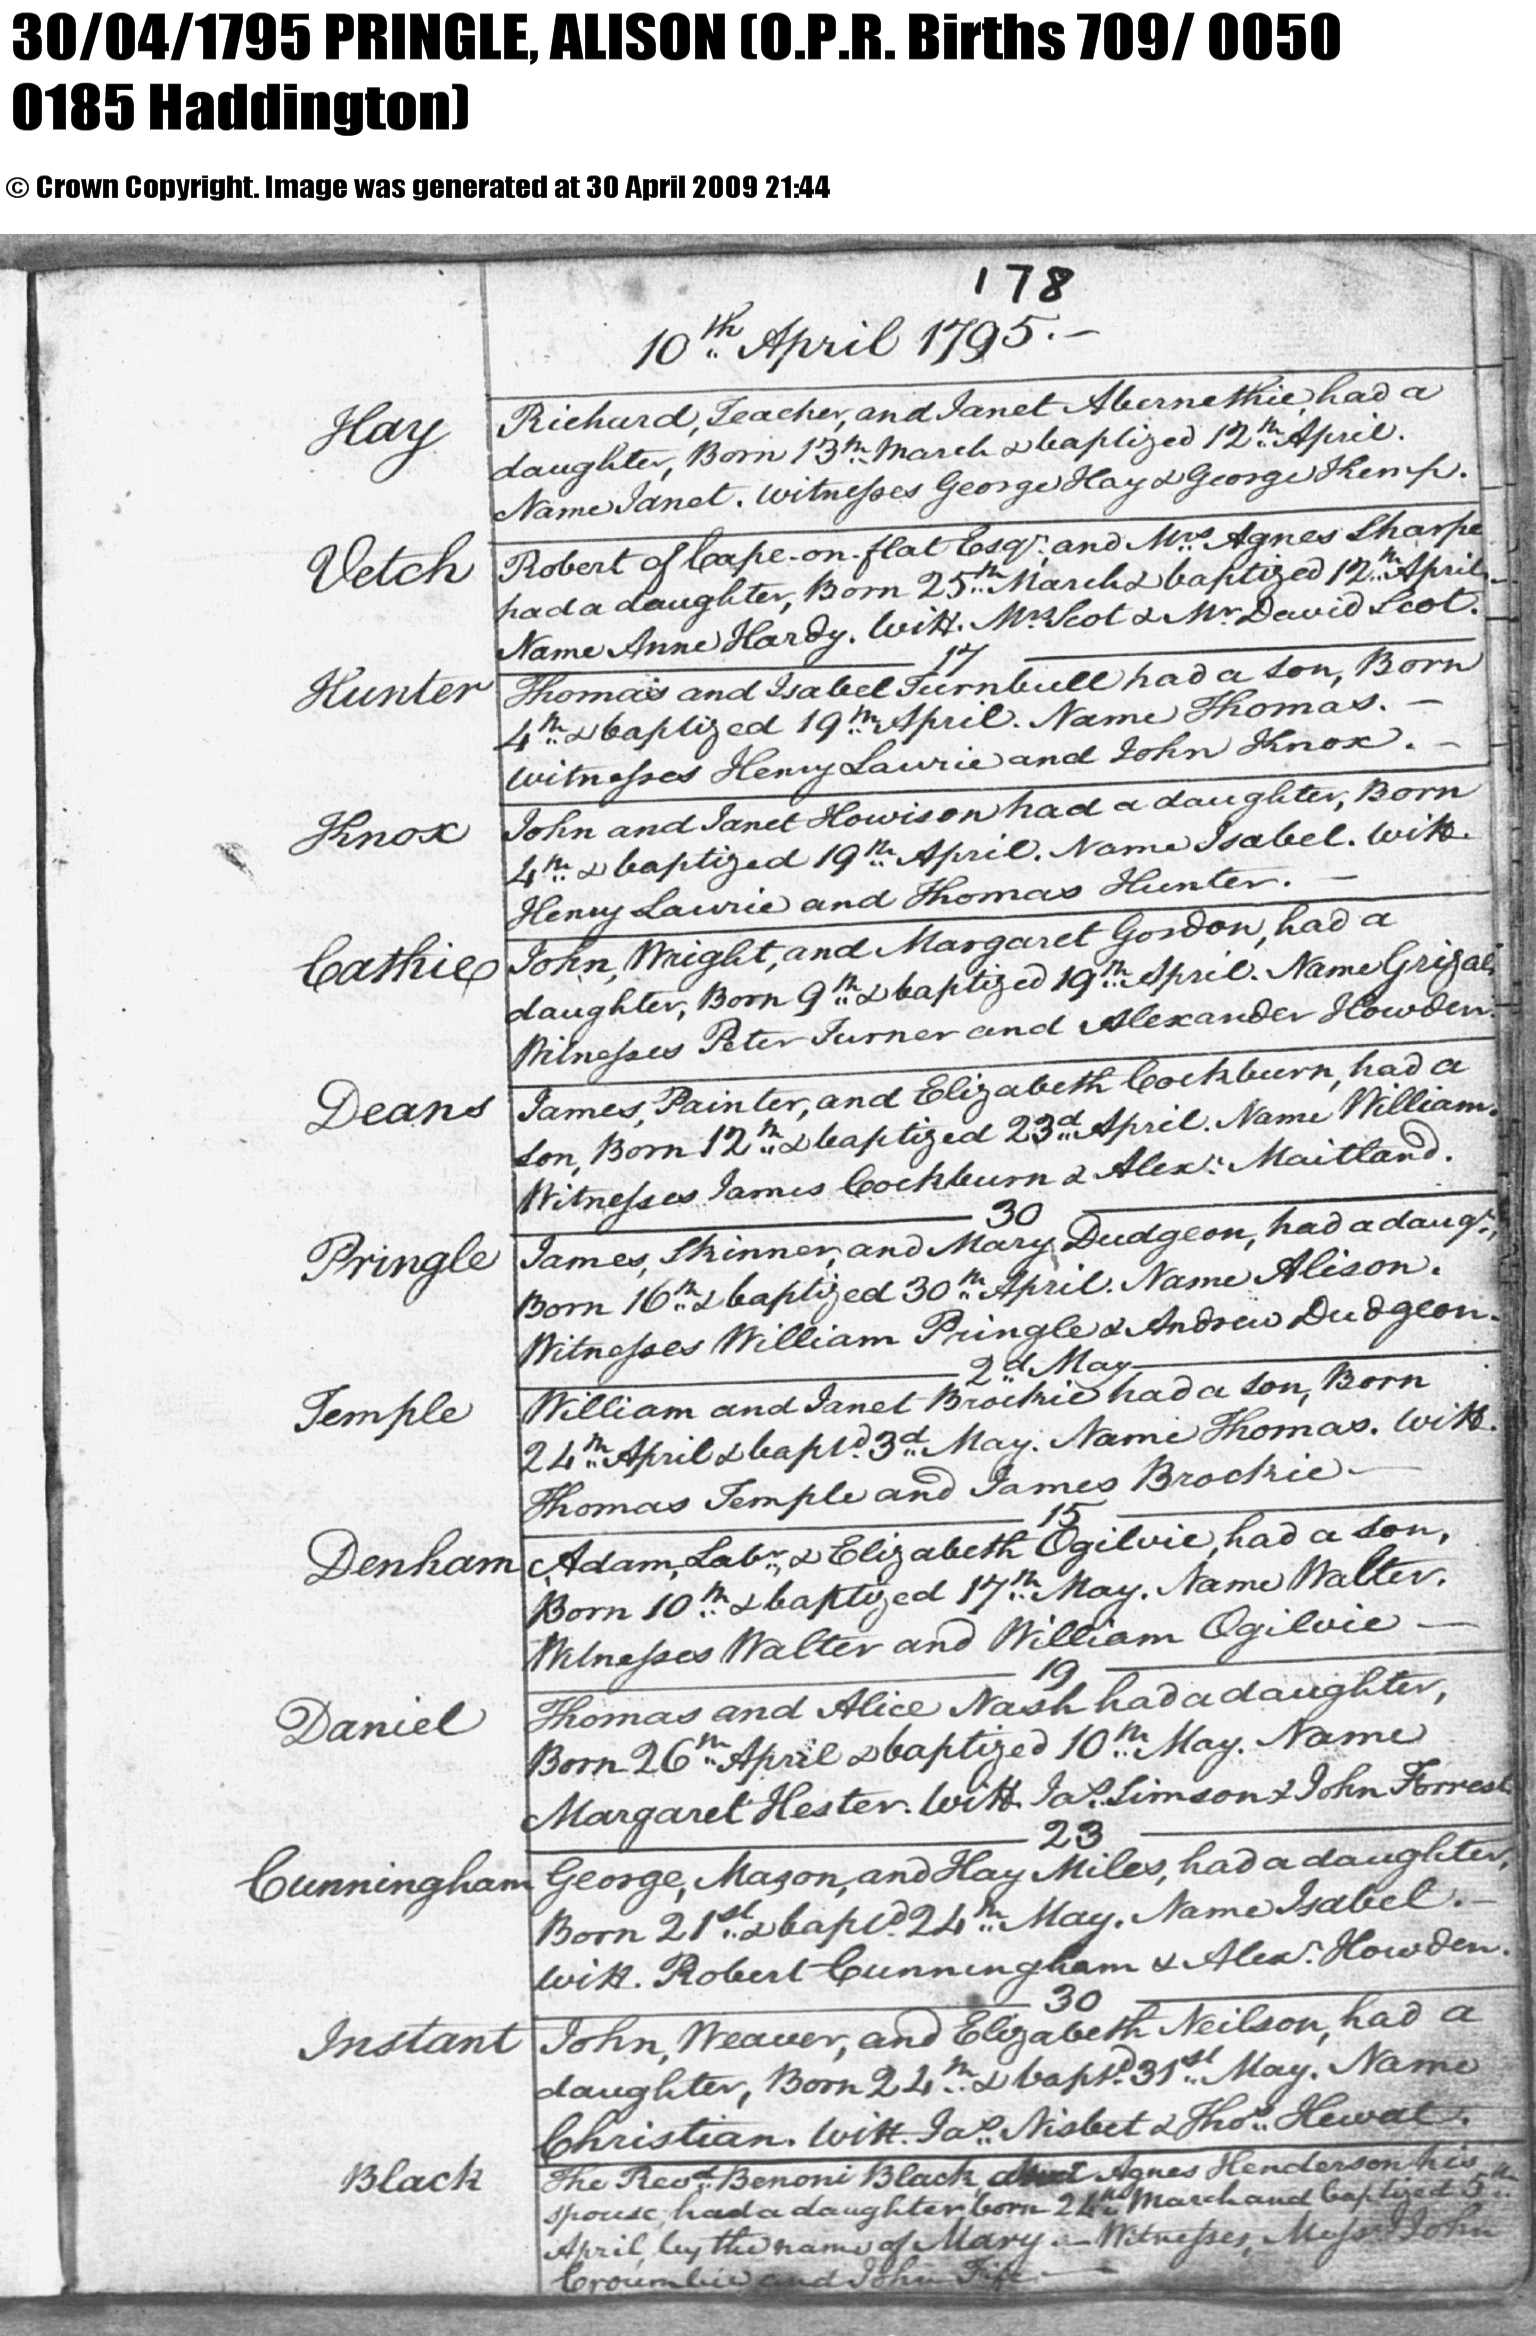 30/04/1795 PRINGLE, ALISON (O.P.R. Births 709/ 0050
0185 Haddington)
© Crown Copyright. Image was generated at 30 April 2009 21:44
178
10th April 1795.—
Hay
Richard, Teacher, and Janet Abernethie, had a
daughter, Born 13th March & baptized 12th April.
Name Janet. Witnesses George Hay & George Kemp.
Vetch
Robert of Cape-on-flat Esqr. and Mrs Agnes Sharpe
had a daughter, Born 25th March & baptized 12th April.
Name Anne Hardy. Witt. Mr Scot & Mr David Scot.
17
Hunter
Thomas and Isabel Turnbull had a son, Born
4th & baptized 19th April. Name Thomas. —
Witnesses Henry Lawrie and John Knox. —
Knox
John and Janet Howison had a daughter, Born
4th & baptized 19th April. Name Isabel. Witt.
Henry Lawrie and Thomas Hunter. —
Cathie
John, Wright, and Margaret Gordon, had a
daughter, Born 9th & baptized 19th April. Name Grizal.
Witnesses Peter Turner and Alexander Howden.
Deans
James, Painter, and Elizabeth Cockburn, had a
son, Born 12th & baptized 23d April. Name William.
Witnesses James Cockburn & Alexr. Maitland.
30
Pringle
James, Skinner, and Mary Dudgeon, had a daugr.,
Born 16th & baptized 30th April. Name Alison.
Witnesses William Pringle & Andrew Dudgeon.
2d May
Temple
William and Janet Brockie had a son, Born
24th April & baptd. 3d May. Name Thomas. Witt.
Thomas Temple and James Brockie —
15
Denham
Adam, Labr., & Elizabeth Ogilvie, had a son,
Born 10th & baptized 17th May. Name Walter.
Witnesses Walter and William Ogilvie —
19
Daniel
Thomas and Alice Nash had a daughter,
Born 26th April & baptized 10th May. Name
Margaret Hester. Witt. Jas. Simson & John Forrest
23
Cunningham
George, Mason, and Hay Miles, had a daughter,
Born 21st & baptd. 24th May. Name Isabel. —
Witt. Robert Cunningham & Alexr. Howden.
30
Instant
John, Weaver, and Elizabeth Neilson, had a
daughter, Born 24th & baptd. 31st May. Name
Christian. Witt. Jas. Nisbet & Thos. Hewat.
Black
The Revd. Benoni Black Agnes Henderson his
spouse, had a daughter born 24th March and baptized 5th
April, by the name of Mary. — Witnesses, Messrs John
Croumbie and John Fife. —